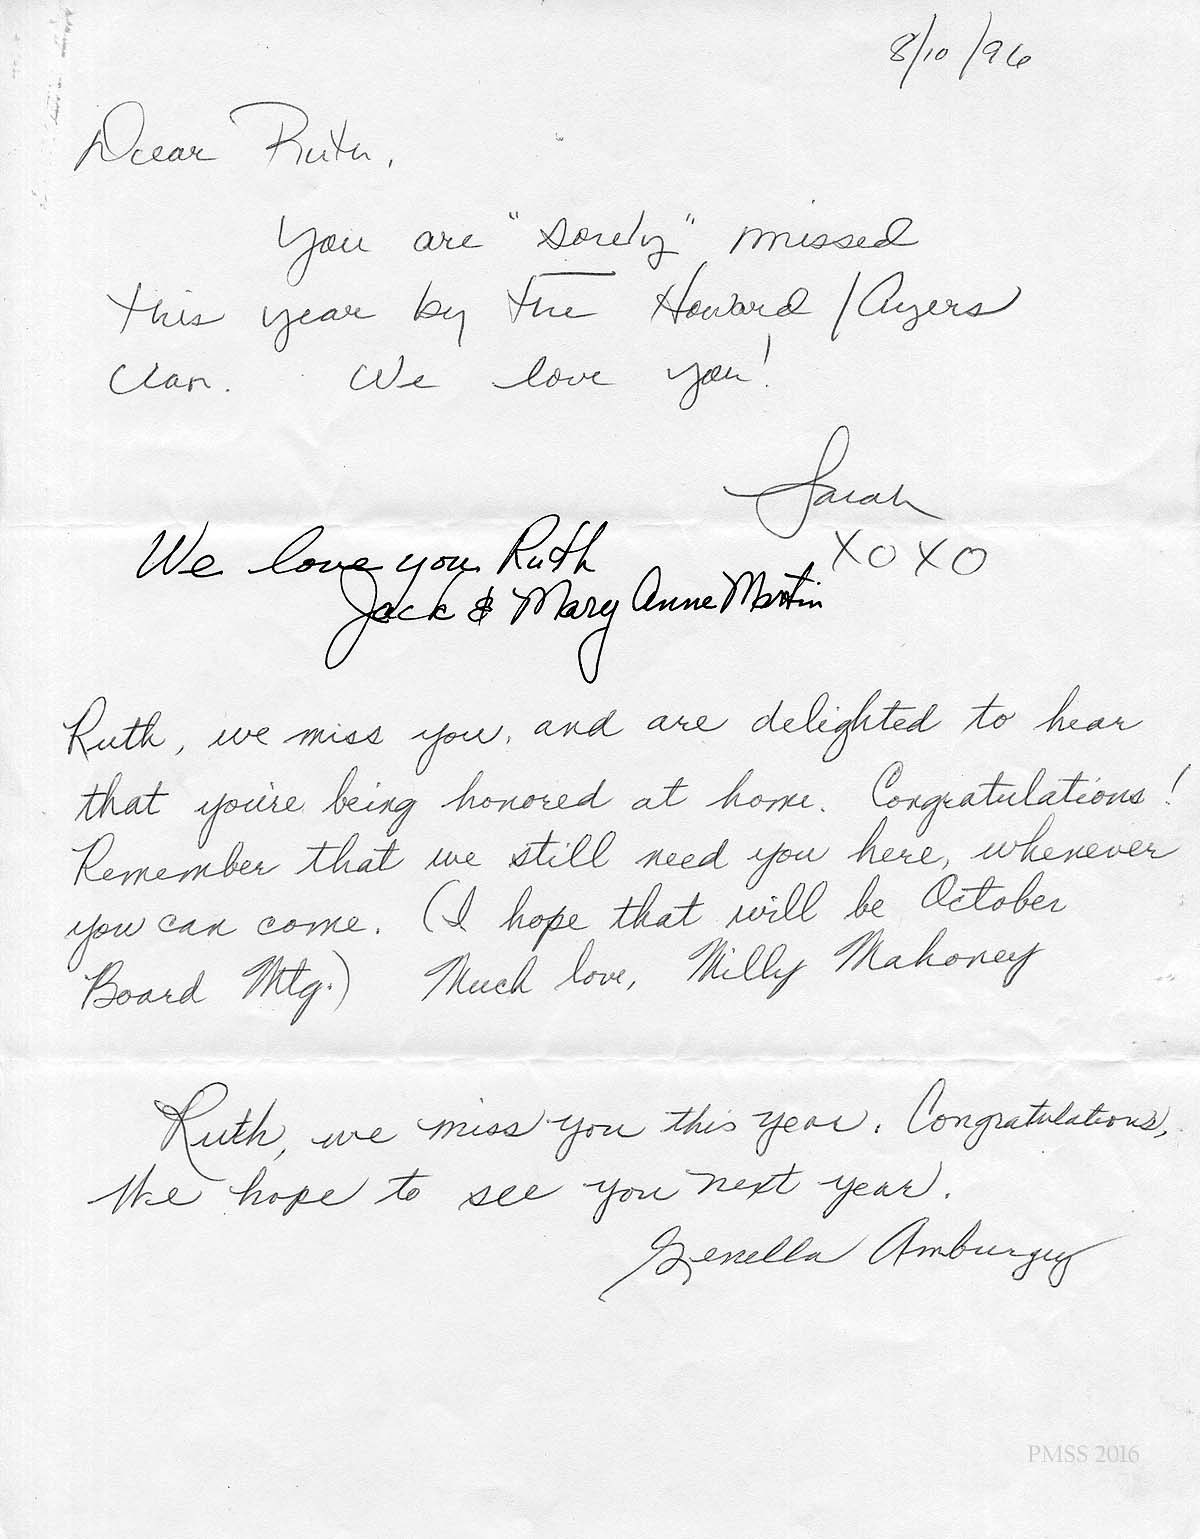 8/10/96
Dear Ruth,
You are "sorely" missed
this year by the Howard/Ayers
Clan. We love you!
Sarah
XOXO
We love you Ruth
Jack & Mary Anne Martin
Ruth, we miss you, and are delighted to hear
that you're being honored at home. Congratulations!
Remember that we still need you here, whenever
you can come. (I hope that will be October
Board Mtg.) Much love, Milly Mahoney
Ruth, we miss you this year. Congratulations,
We hope to see you next year.
Genella Amburgey
PMSS 2016